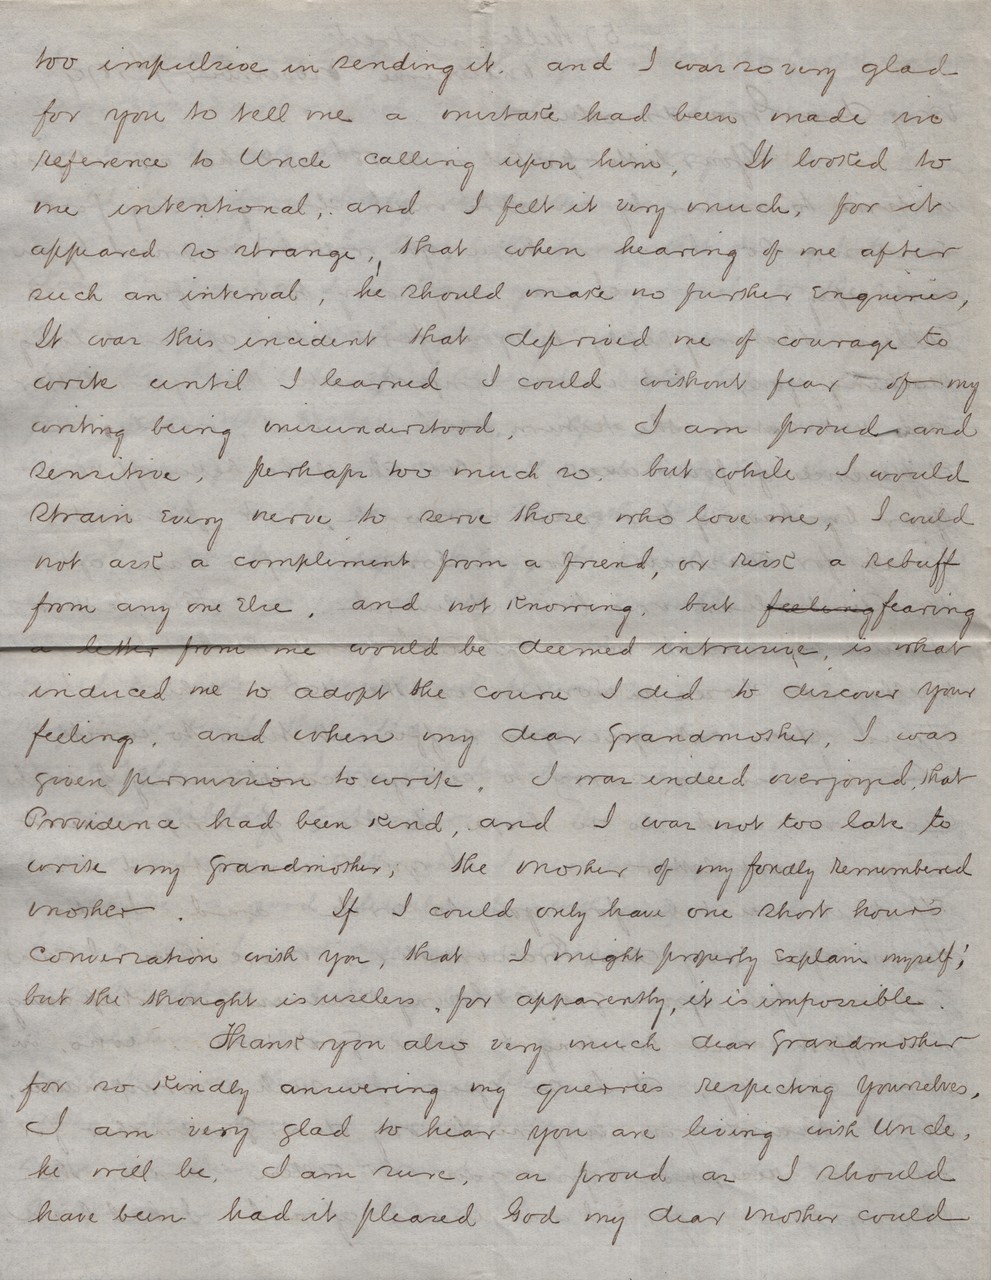 too impulsive in sending it. and I was so very glad
for you to tell me a mistake had been made in
reference to Uncle calling upon him, It looked to
me intentional, and I felt it very much, for it
appeared so strange, that when hearing of me after
such an interval, he should make no further Enquiries,
It was this incident that deprived me of courage to
write until I learned I could without fear of my
writing being misunderstood. I am proud and
sensitive, perhaps too much so. but while I would
strain Every nerve to serve those who love me, I could
not ask a compliment from a friend, or risk a rebuff
from any one Else, and not Knowing, but feeling fearing
a letter from me would be deemed intrusive, is what
induced me to adopt the course I did to discover your
feeling. and when my dear Grandmother, I was
given permission to write, I was indeed overjoyed, that
Providence had been Kind, and I was not too late to
write my Grandmother; the mother of my fondly remembered
mother. If I could only have one short hour's
Conversation with you, that I might properly Explain myself;
but the thought is useless, for apparently, it is impossible.
Thank you also very much dear Grandmother
for so Kindly answering my querries respecting yourselves,
I am very glad to hear you are living with Uncle,
he will be, I am sure, as proud as I should
have been had it pleased God my dear mother could